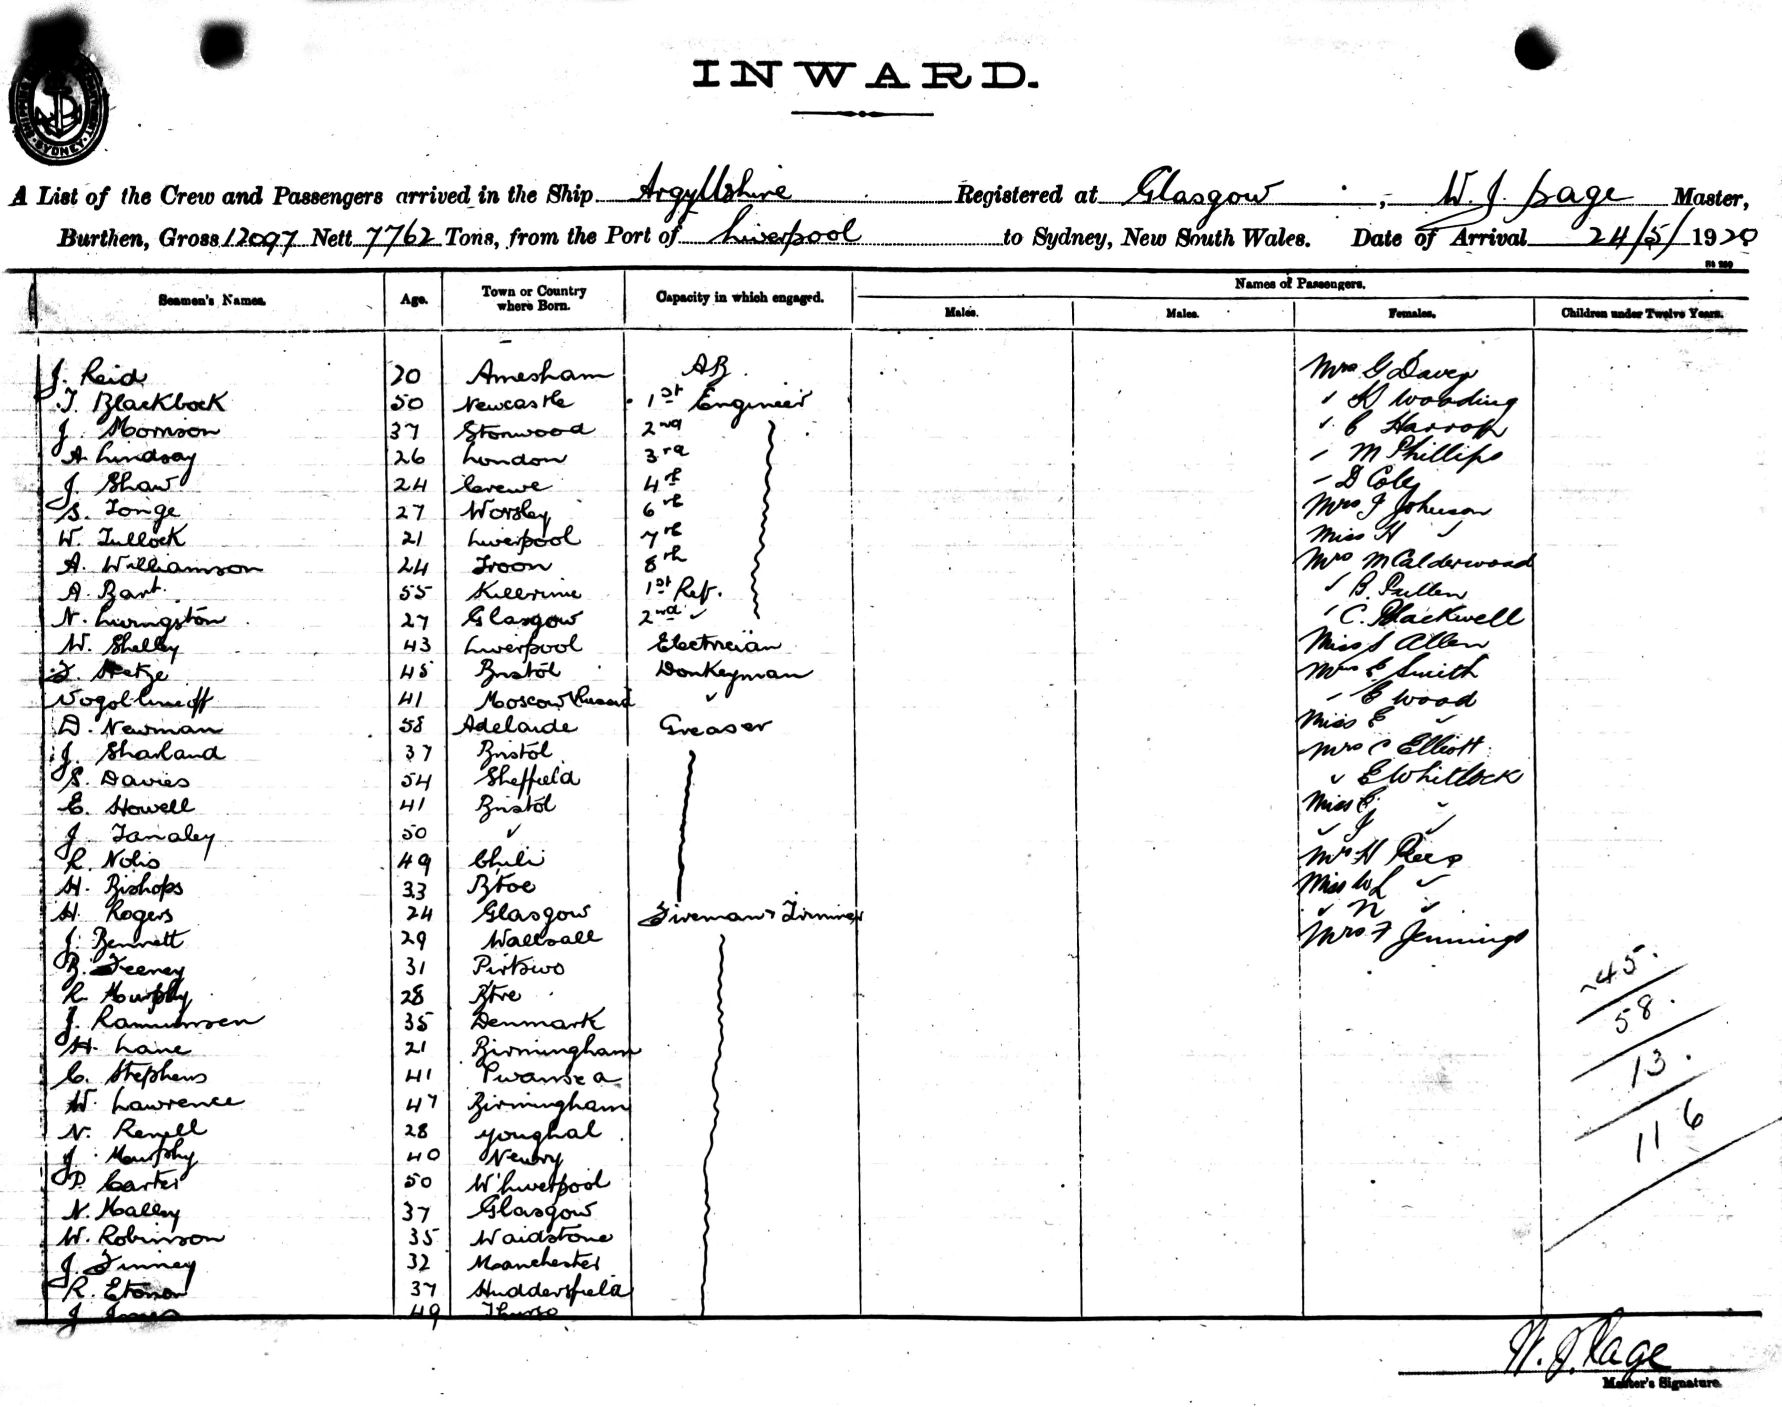 INWARD.
A List of the Crew and Passengers arrived in the Ship Argyllshire Registered at Glasgow, W. J. Page Master,
Burthen, Gross 12097 Nett 7762 Tons, from the Port of Liverpool to Sydney, New South Wales. Date of Arrival 24/5/1920
Names of Passengers.
Seamen's Names. Age. Town or Country where Born. Capacity in which engaged. Males. Males. Females. Children under Twelve Years.
J. Reid 20 Amesham AB. Mrs G Davey
T. Blacklock 50 Newcastle 1st Engineer ✓ Wooding
J. Morrison 37 2nd ✓ C Harrop
A. Lindsay 26 London 3rd ✓ M Phillips
J. Shaw 24 Crewe 4th ✓ D Coley
S. Tonge 27 Worsley 6th Mrs J Johnson
W. Tullock 21 Liverpool 7th Miss H ✓
A. Williamson 24 Troon 8th Mrs M Calderwood
A. Bart. 55 1st Ref. ✓ B. Pullen
N. Livingston 27 Glasgow 2nd ✓ ✓ C. Blackwell
W. Shelley 43 Liverpool Electrician Miss S Allen
45 Bristol Donkeyman Mrs E Smith
41 Moscow Russia ✓ ✓ E Wood
D. Newman 58 Adelaide Greaser Miss E ✓
J. Sharland 37 Bristol Mrs C Elliott
S. Davies 54 Sheffield ✓ E Whitlock
E. Howell 41 Bristol Miss E ✓
J. Tanaley 50 ✓ ✓ J ✓
R. Nolis 49 Chili Mrs H Rees
H. Bishops 33 B'toe Miss W L ✓
H. Rogers 24 Glasgow Fireman & Trimmer ✓ N ✓
J. Bennett 29 Wallsall Mrs F Jennings
B. Feeney 31
R. Murphy 28 B'tre
J. Rasmunsen 35 Denmark
H. Lane 21 Birmingham
C. Stephens 41 Swansea
W. Lawrence 47 Birmingham
N. Renell 28 Youghal
J. Murphy 40 Newry
P. Carter 50 W'Liverpool
N. Malley 37 Glasgow
W. Robinson 35 Maidstone
J. Finney 32 Manchester
R. Etonon 37 Huddersfield
J. Innes 49 Thurso
45.
58.
13.
116
W. J. Page
Master's Signature.